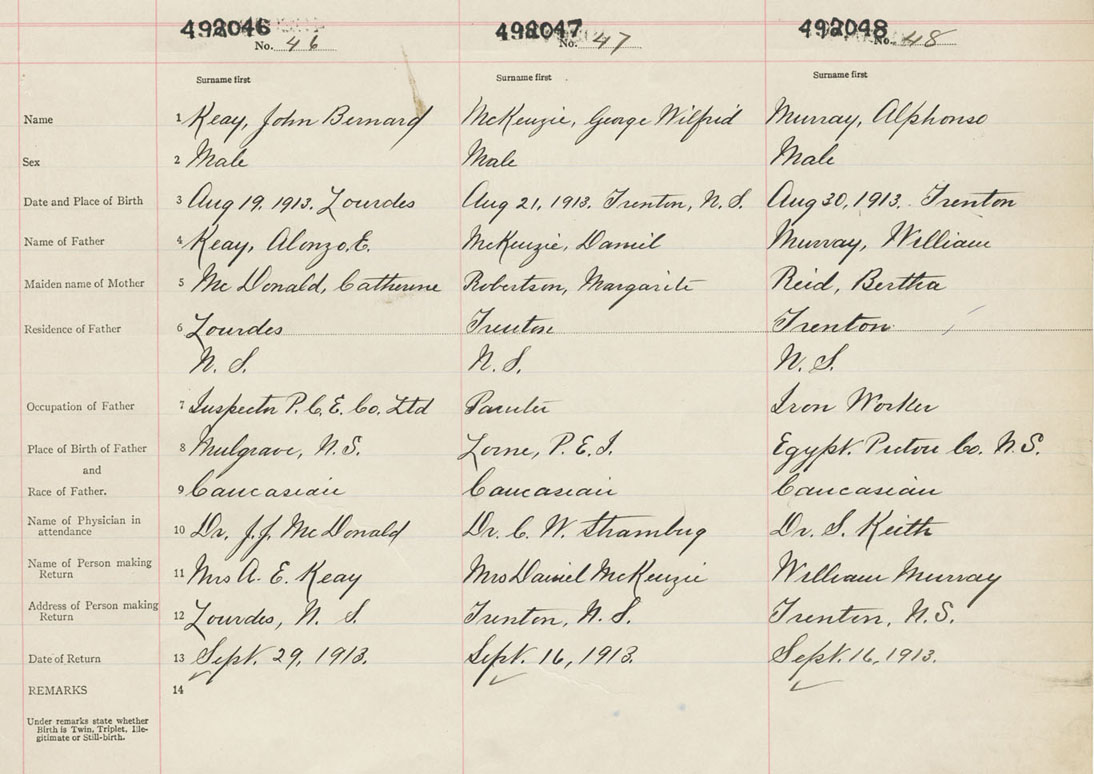 492046 492047 492048
No. 46 No. 47 No. 48
Surname first Surname first Surname first
Name 1 Keay, John Bernard McKenzie, George Wilfrid Murray, Alphonso
Sex 2 Male Male Male
Date and Place of Birth 3 Aug 19, 1913. Lourdes Aug 21, 1913. Trenton, N.S. Aug 30, 1913. Trenton
Name of Father 4 Keay, Alonzo, E. McKenzie, Daniel Murray, William
Maiden name of Mother 5 McDonald, Catherine Robertson, Margarite Reid, Bertha
Residence of Father 6 Lourdes Trenton Trenton
N. S. N. S. N. S.
Occupation of Father 7 Inspector P. C. E. Co. Ltd Painter Iron Worker
Place of Birth of Father 8 Mulgrave, N.S. Lorne, P.E.I. Egypt. Pictou Co. N.S.
and
Race of Father. 9 Caucasian Caucasian Caucasian
Name of Physician in
attendance 10 Dr. J.J. McDonald Dr. C. W. Dr. S. Keith
Name of Person making
Return 11 Mrs A. E. Keay Mrs Daniel McKenzie William Murray
Address of Person making
Return 12 Lourdes, N. S. Trenton, N.S. Trenton, N.S.
Date of Return 13 Sept. 29, 1913. Sept. 16, 1913. Sept. 16, 1913.
REMARKS 14
Under remarks state whether
Birth is Twin, Triplet, Ille-
gitimate or Still-birth.